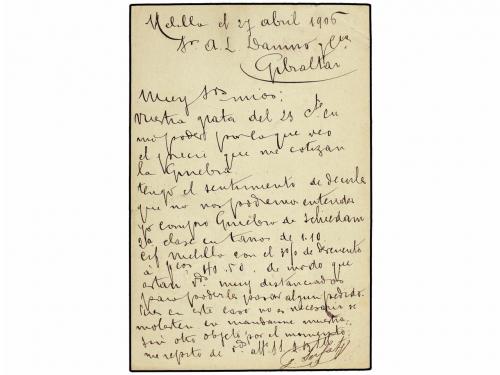 Melilla el 27 abril 1906
Sr A. L. Damino y Cia
Gibraltar
Muy Srs mios:
Vuestra grata del 25 cte en
mi poder por la que veo
el precio que me cotizan
la Ginebra
tengo el sentimiento de decirle
que no nos podremos entender
yo compro Ginebra de Schiedam
2a clase en tanos de 1.10
cif Melilla con el 30% de descuento
á ptas 40.50. de modo que
estan Vds muy distanciados
para poderles pasar algun pedido.
en este caso no es necesario se
molesten en mandarme muestra
sin otro objeto por el momento
me repito de Vds